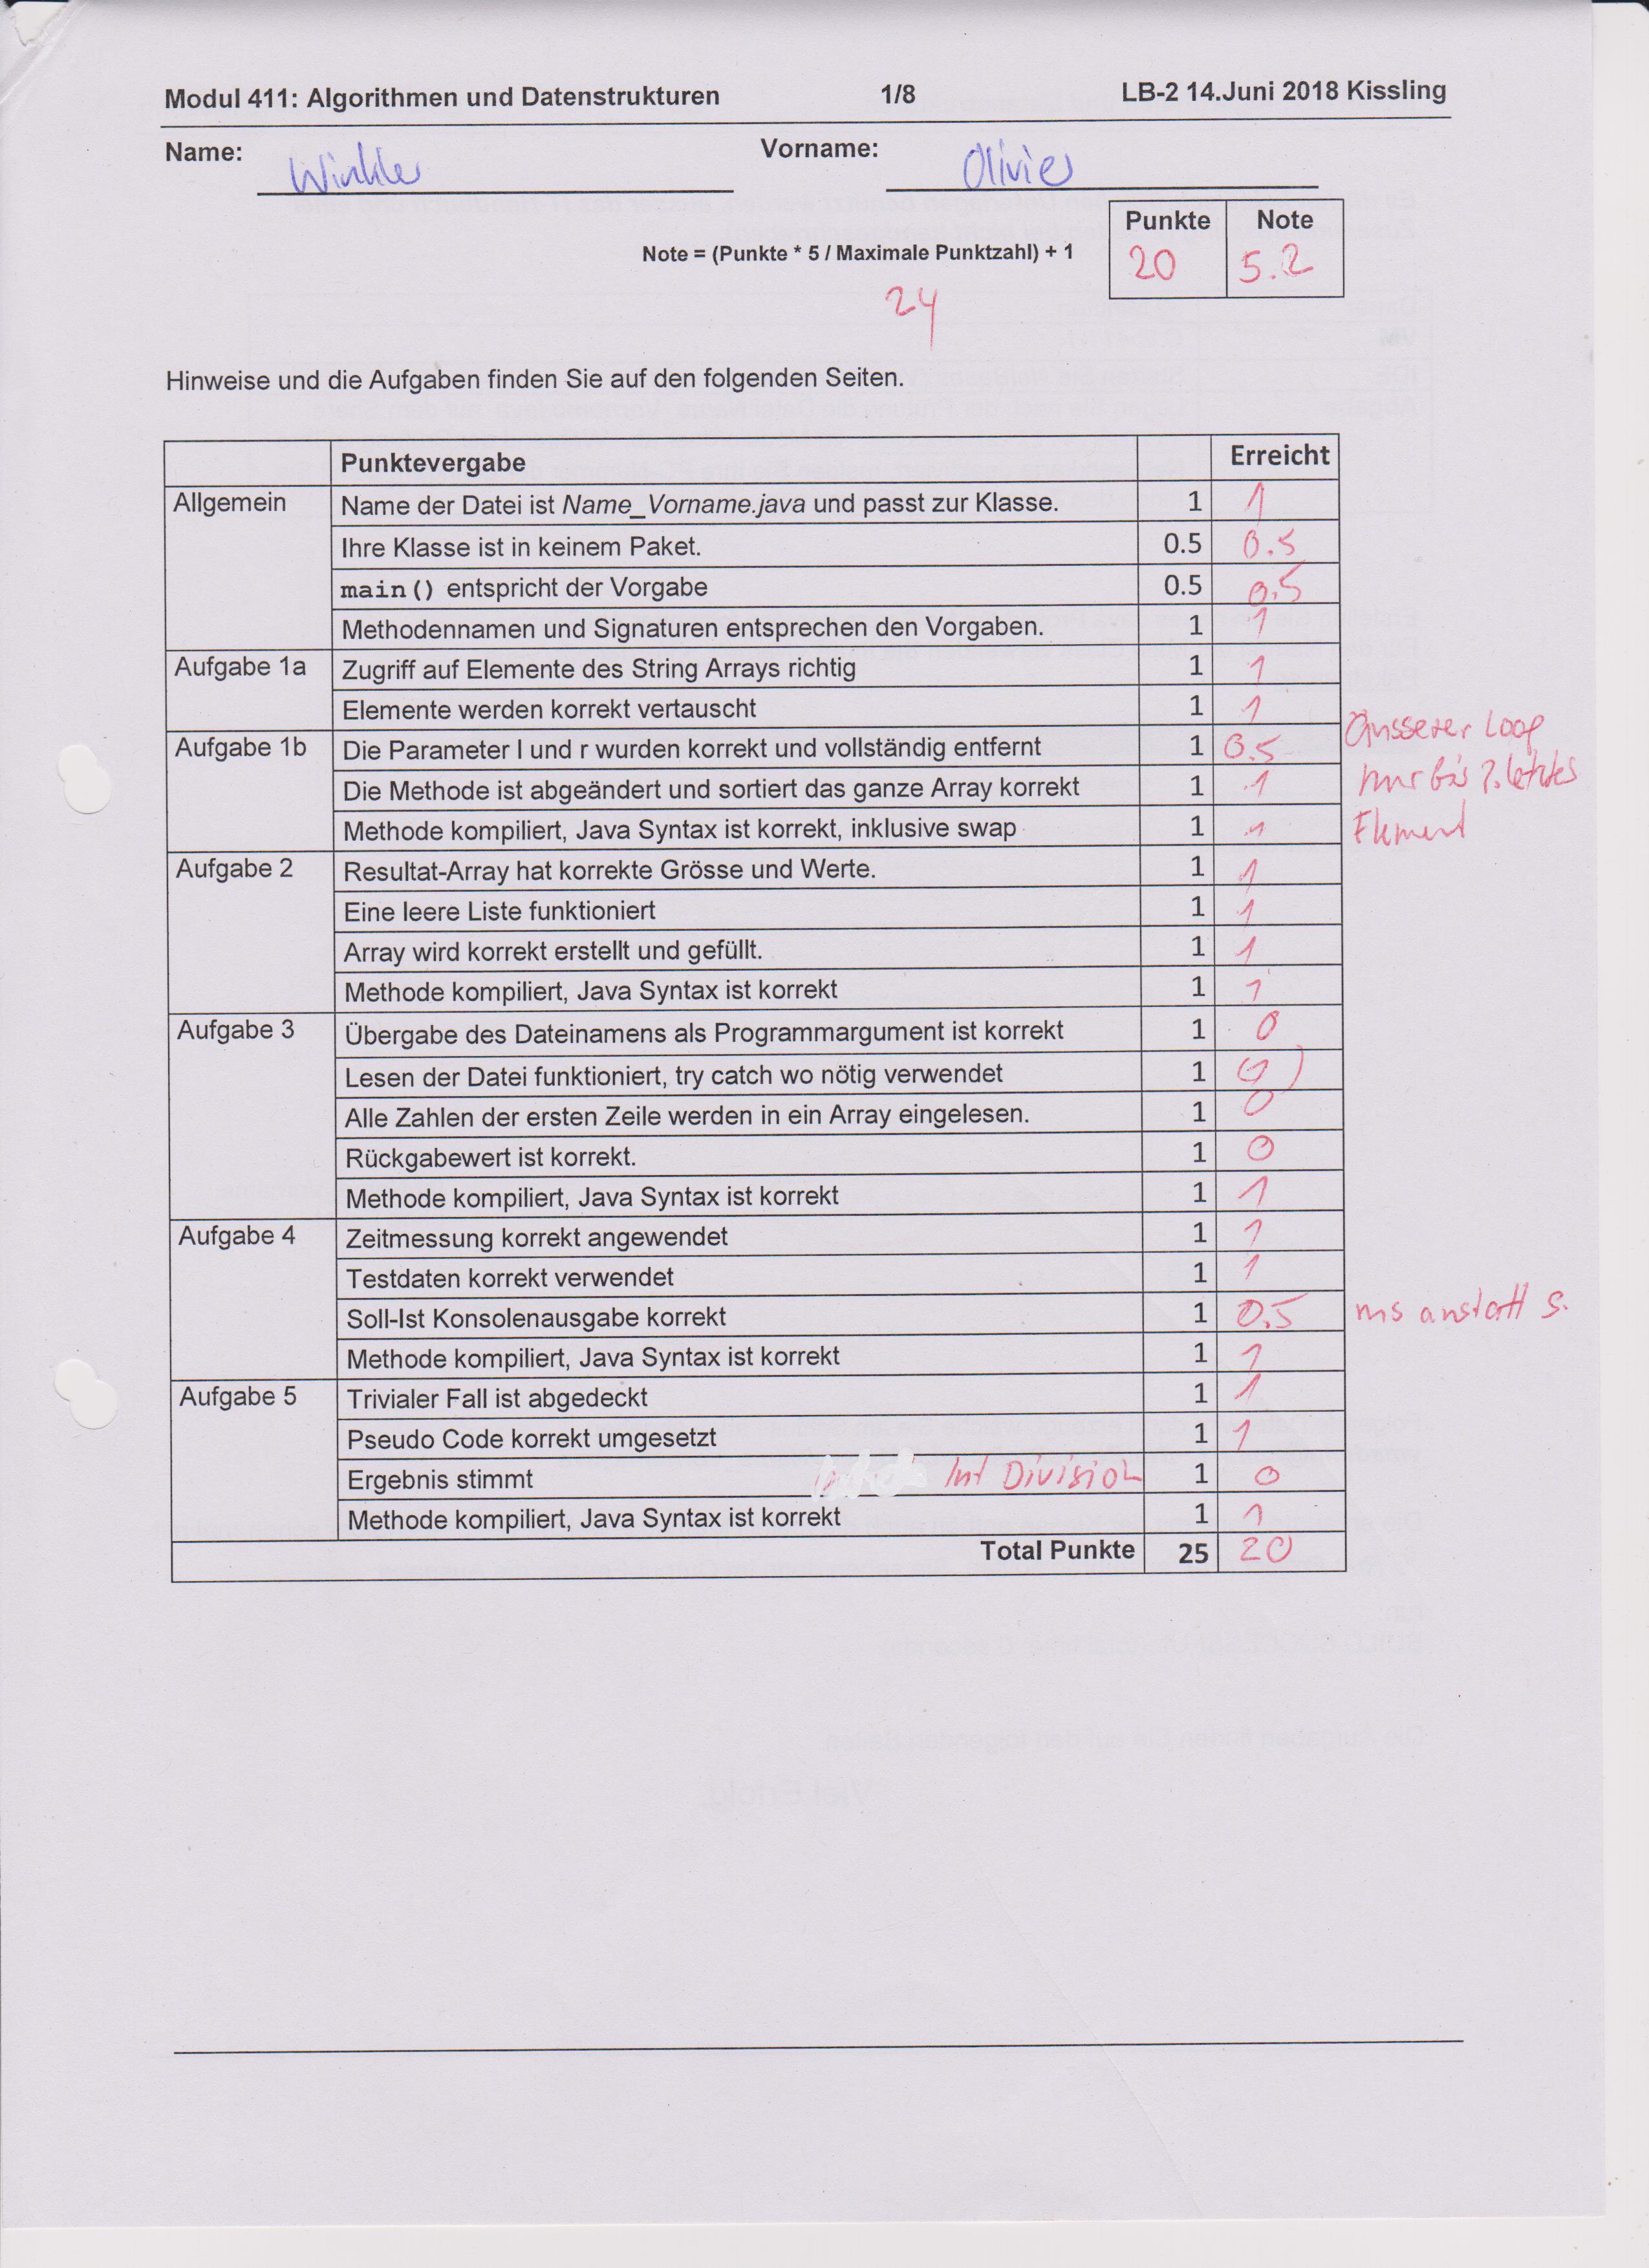 Modul 411: Algorithmen und Datenstrukturen 1/8 LB-2 14.Juni 2018 Kissling
Name: Winkler Vorname: Olivier
Punkte Note
Note = (Punkte * 5 / Maximale Punktzahl) + 1 20 5.2
24
Hinweise und die Aufgaben finden Sie auf den folgenden Seiten.
Punktevergabe Erreicht
Allgemein Name der Datei ist Name_Vorname.java und passt zur Klasse. 1 1
Ihre Klasse ist in keinem Paket. 0.5 0.5
main() entspricht der Vorgabe 0.5 0.5
Methodennamen und Signaturen entsprechen den Vorgaben. 1 1
Aufgabe 1a Zugriff auf Elemente des String Arrays richtig 1 1
Elemente werden korrekt vertauscht 1 1
Aufgabe 1b Die Parameter l und r wurden korrekt und vollständig entfernt 1 0.5 Äusserer Loop
Die Methode ist abgeändert und sortiert das ganze Array korrekt 1 1 nur bis letztes
Methode kompiliert, Java Syntax ist korrekt, inklusive swap 1 1 Element
Aufgabe 2 Resultat-Array hat korrekte Grösse und Werte. 1 1
Eine leere Liste funktioniert 1 1
Array wird korrekt erstellt und gefüllt. 1 1
Methode kompiliert, Java Syntax ist korrekt 1 1
Aufgabe 3 Übergabe des Dateinamens als Programmargument ist korrekt 1 0
Lesen der Datei funktioniert, try catch wo nötig verwendet 1
Alle Zahlen der ersten Zeile werden in ein Array eingelesen. 1 0
Rückgabewert ist korrekt. 1 0
Methode kompiliert, Java Syntax ist korrekt 1 1
Aufgabe 4 Zeitmessung korrekt angewendet 1 1
Testdaten korrekt verwendet 1 1
Soll-Ist Konsolenausgabe korrekt 1 0.5 ms anstatt s.
Methode kompiliert, Java Syntax ist korrekt 1 1
Aufgabe 5 Trivialer Fall ist abgedeckt 1 1
Pseudo Code korrekt umgesetzt 1 1
Ergebnis stimmt Int Division 1 0
Methode kompiliert, Java Syntax ist korrekt 1 1
Total Punkte 25 20